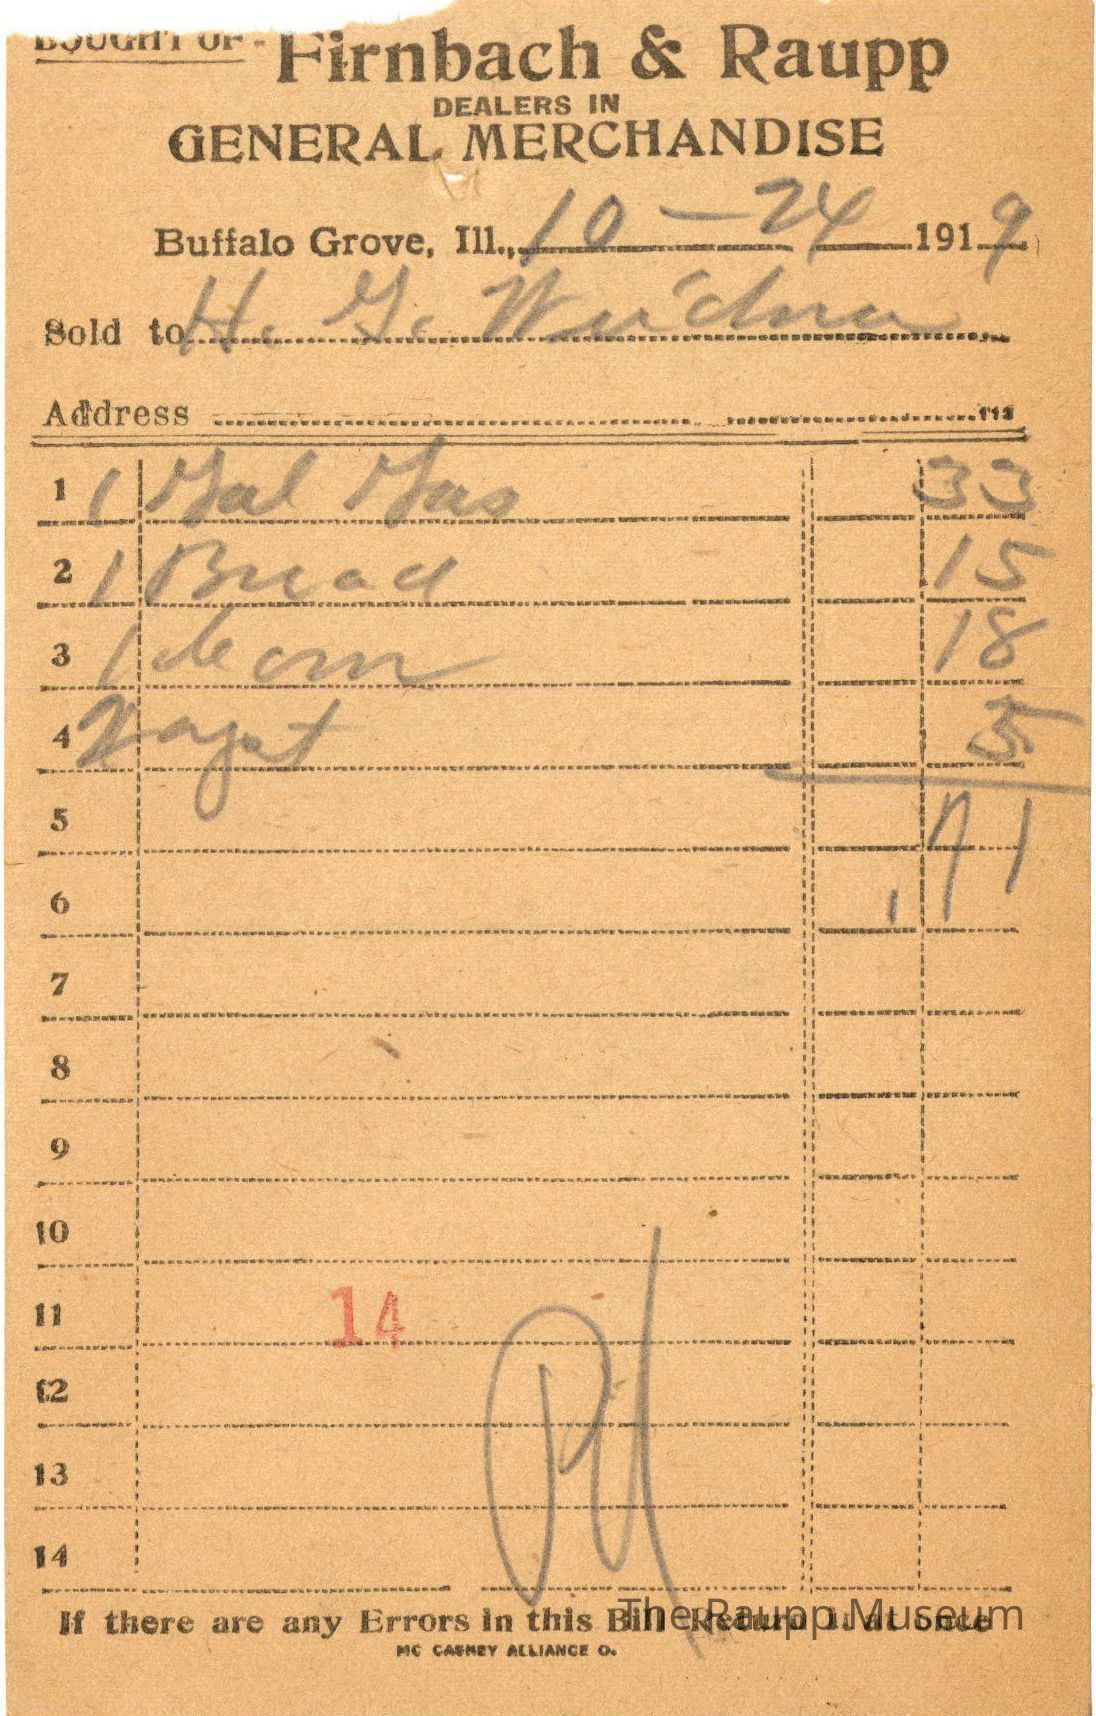 BOUGHT OF - Firnbach & Raupp
DEALERS IN
GENERAL MERCHANDISE
Buffalo Grove, Ill., 10 - 24 1919
Sold to H. G. Weidner
Address 113
1 1 Gal Gas 33
2 1 Bread 15
3 1 Corn 18
4 5
5 71
6
7
8
9
10
11 14
12
13
14
Pd
If there are any Errors in this Bill Return it at once
The Raupp Museum
MC CASKEY ALLIANCE O.